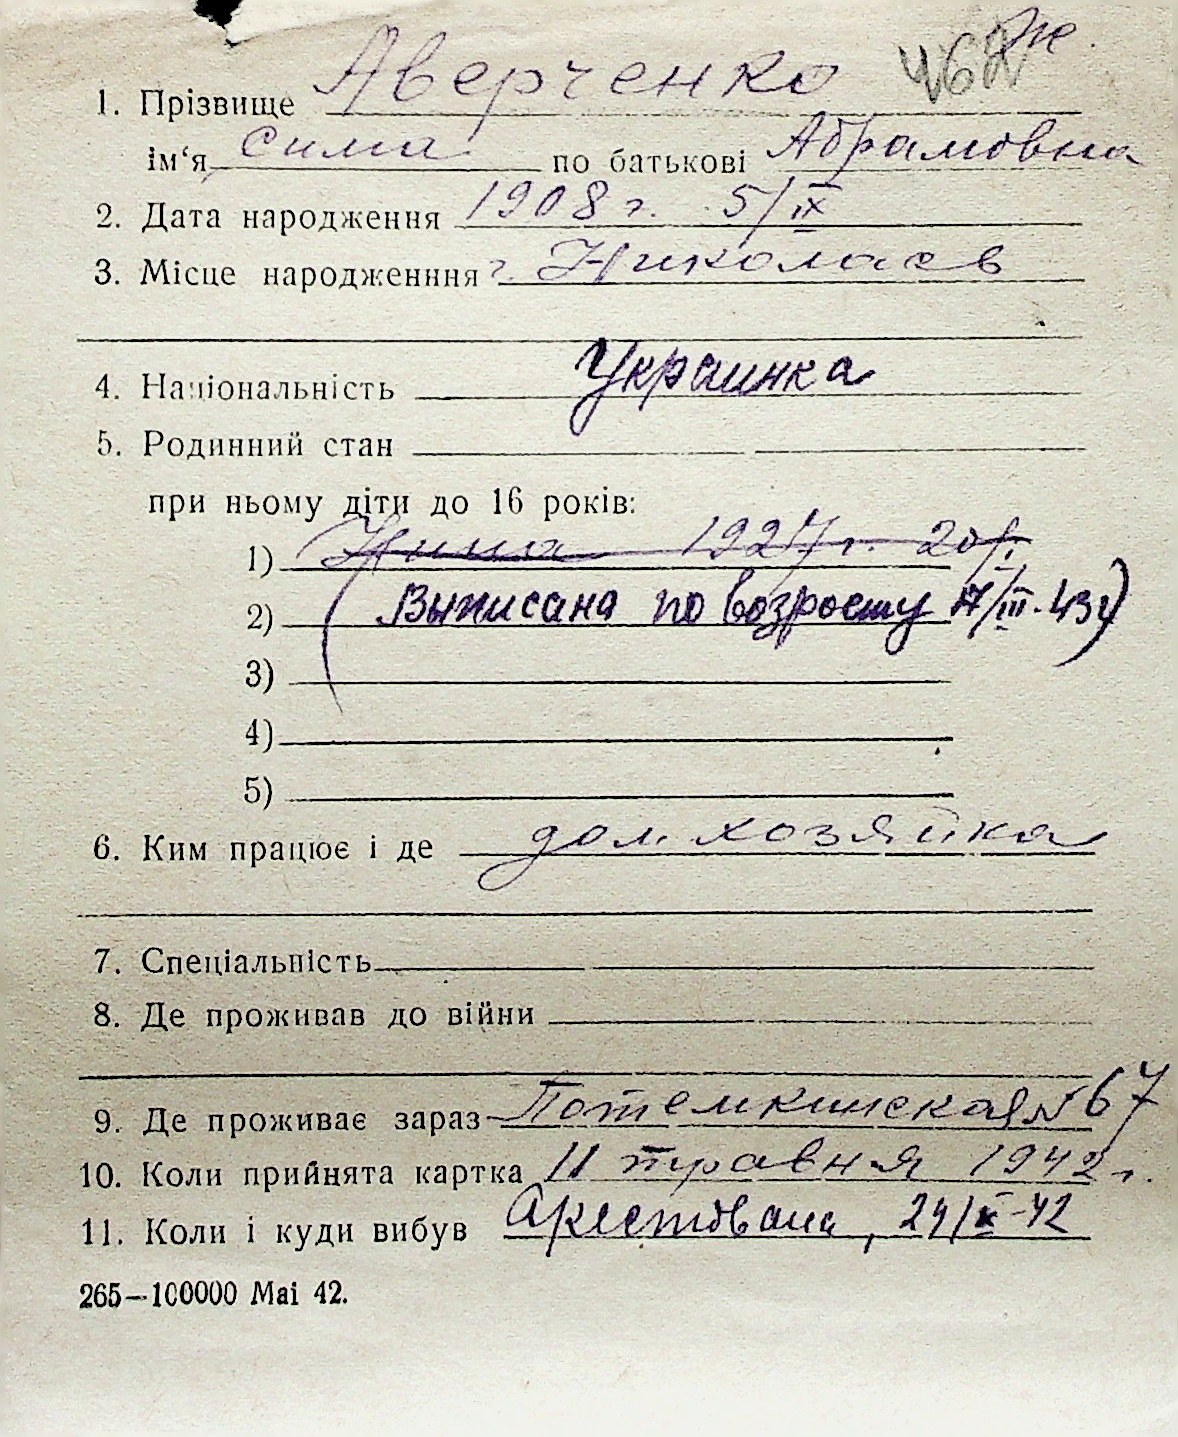 462 Же.
1. Прізвище Аверченко
ім‘я Сима по батькові Абрамовна
2. Дата народження 1908 г. 5/IX
3. Місце народженння г. Николаев
4. Національність Украинка
5. Родинний стан
при ньому діти до 16 років:
1) Нина 1927 г. 20/I.
2) (Выписана по возросту 17/III.43г)
3)
4)
5)
6. Ким працює і де дом. хозяйка
7. Спеціальність
8. Де проживав до війни
9. Де проживає зараз Потемкинская № 67
10. Коли прийнята картка 11 травня 1942 г.
11. Коли і куди вибув Арестована, 24/X-42
265—100000 Mai 42.